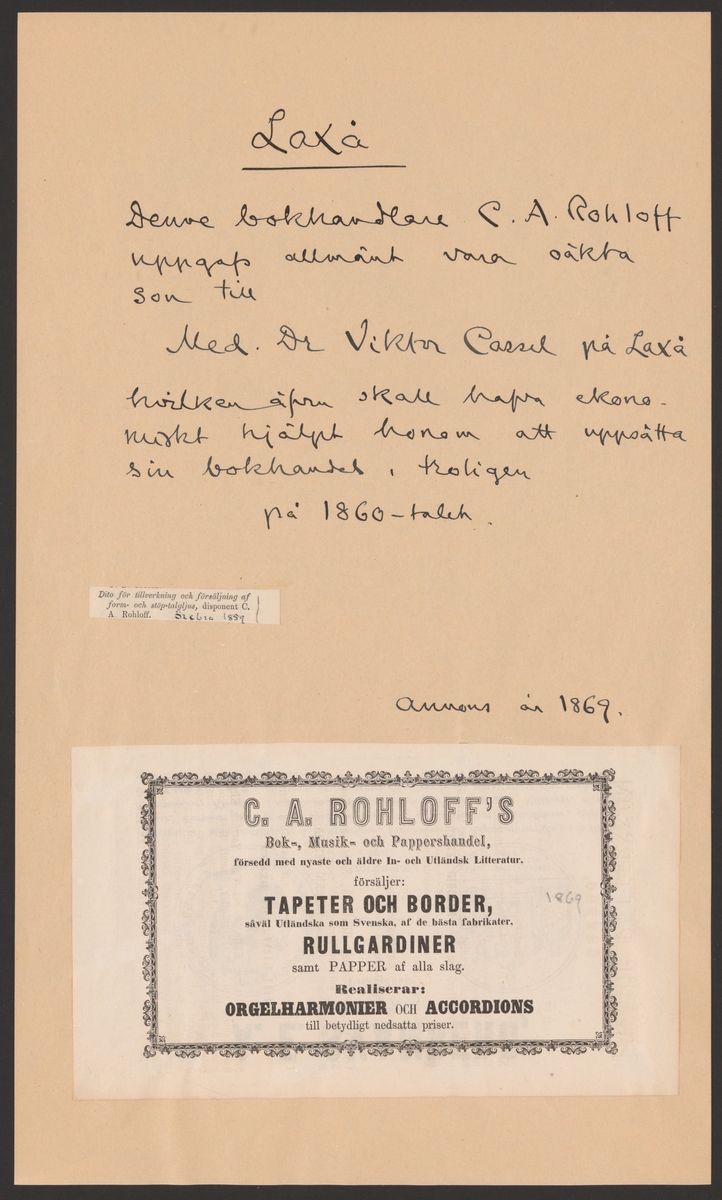 Laxå
Denne bokhandlare C. A. Rohloff
uppgafs allmänt vara oäkta
son till
Med. Dr Viktor Cassel på Laxå
hvilken äfven skall hafva ekono-
miskt hjälpt honom att uppsätta
sin bokhandel, troligen
på 1860-talet.
Dito för tillverkning och försäljning af
form- och stöp-talgljus, disponent C.
A Rohloff. Örebro 1859
Annons år 1869.
C. A. ROHLOFF'S
Bok-, Musik- och Pappershandel,
försedd med nyaste och äldre In- och Utländsk Litteratur.
försäljer:
TAPETER OCH BORDER, 1869
såväl Utländska som Svenska, af de bästa fabrikater,
RULLGARDINER
samt PAPPER af alla slag.
Realiserar:
ORGELHARMONIER OCH ACCORDIONS
till betydligt nedsatta priser.